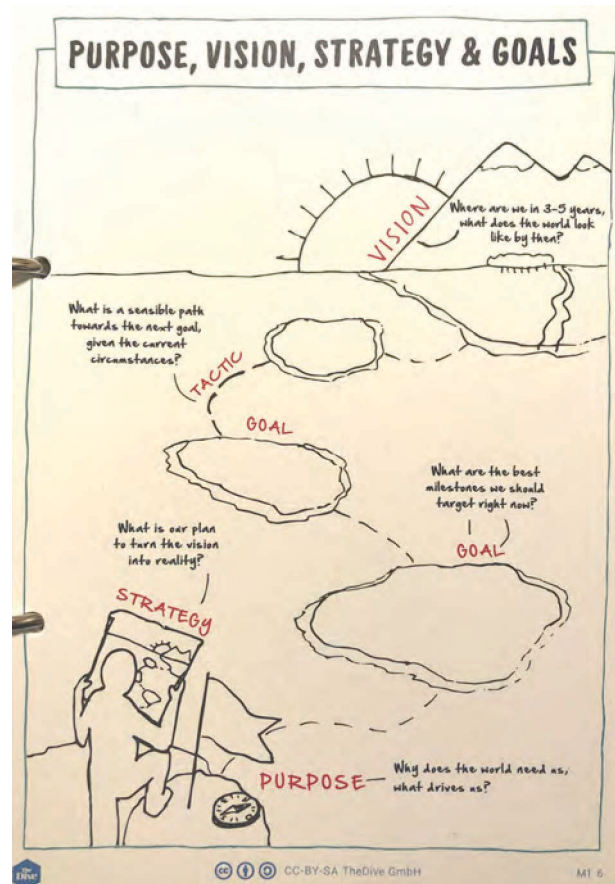 PURPOSE, VISION, STRATEGY & GOALS
VISION
Where are we in 3-5 years,
what does the world look
like by then?
What is a sensible path
towards the next goal,
given the current
circumstances?
TACTIC
GOAL
What are the best
milestones we should
target right now?
GOAL
What is our plan
to turn the vision
into reality?
STRATEGY
PURPOSE
Why does the world need us,
what drives us?
The
DIVE
CC-BY-SA TheDive GmbH
M1 6